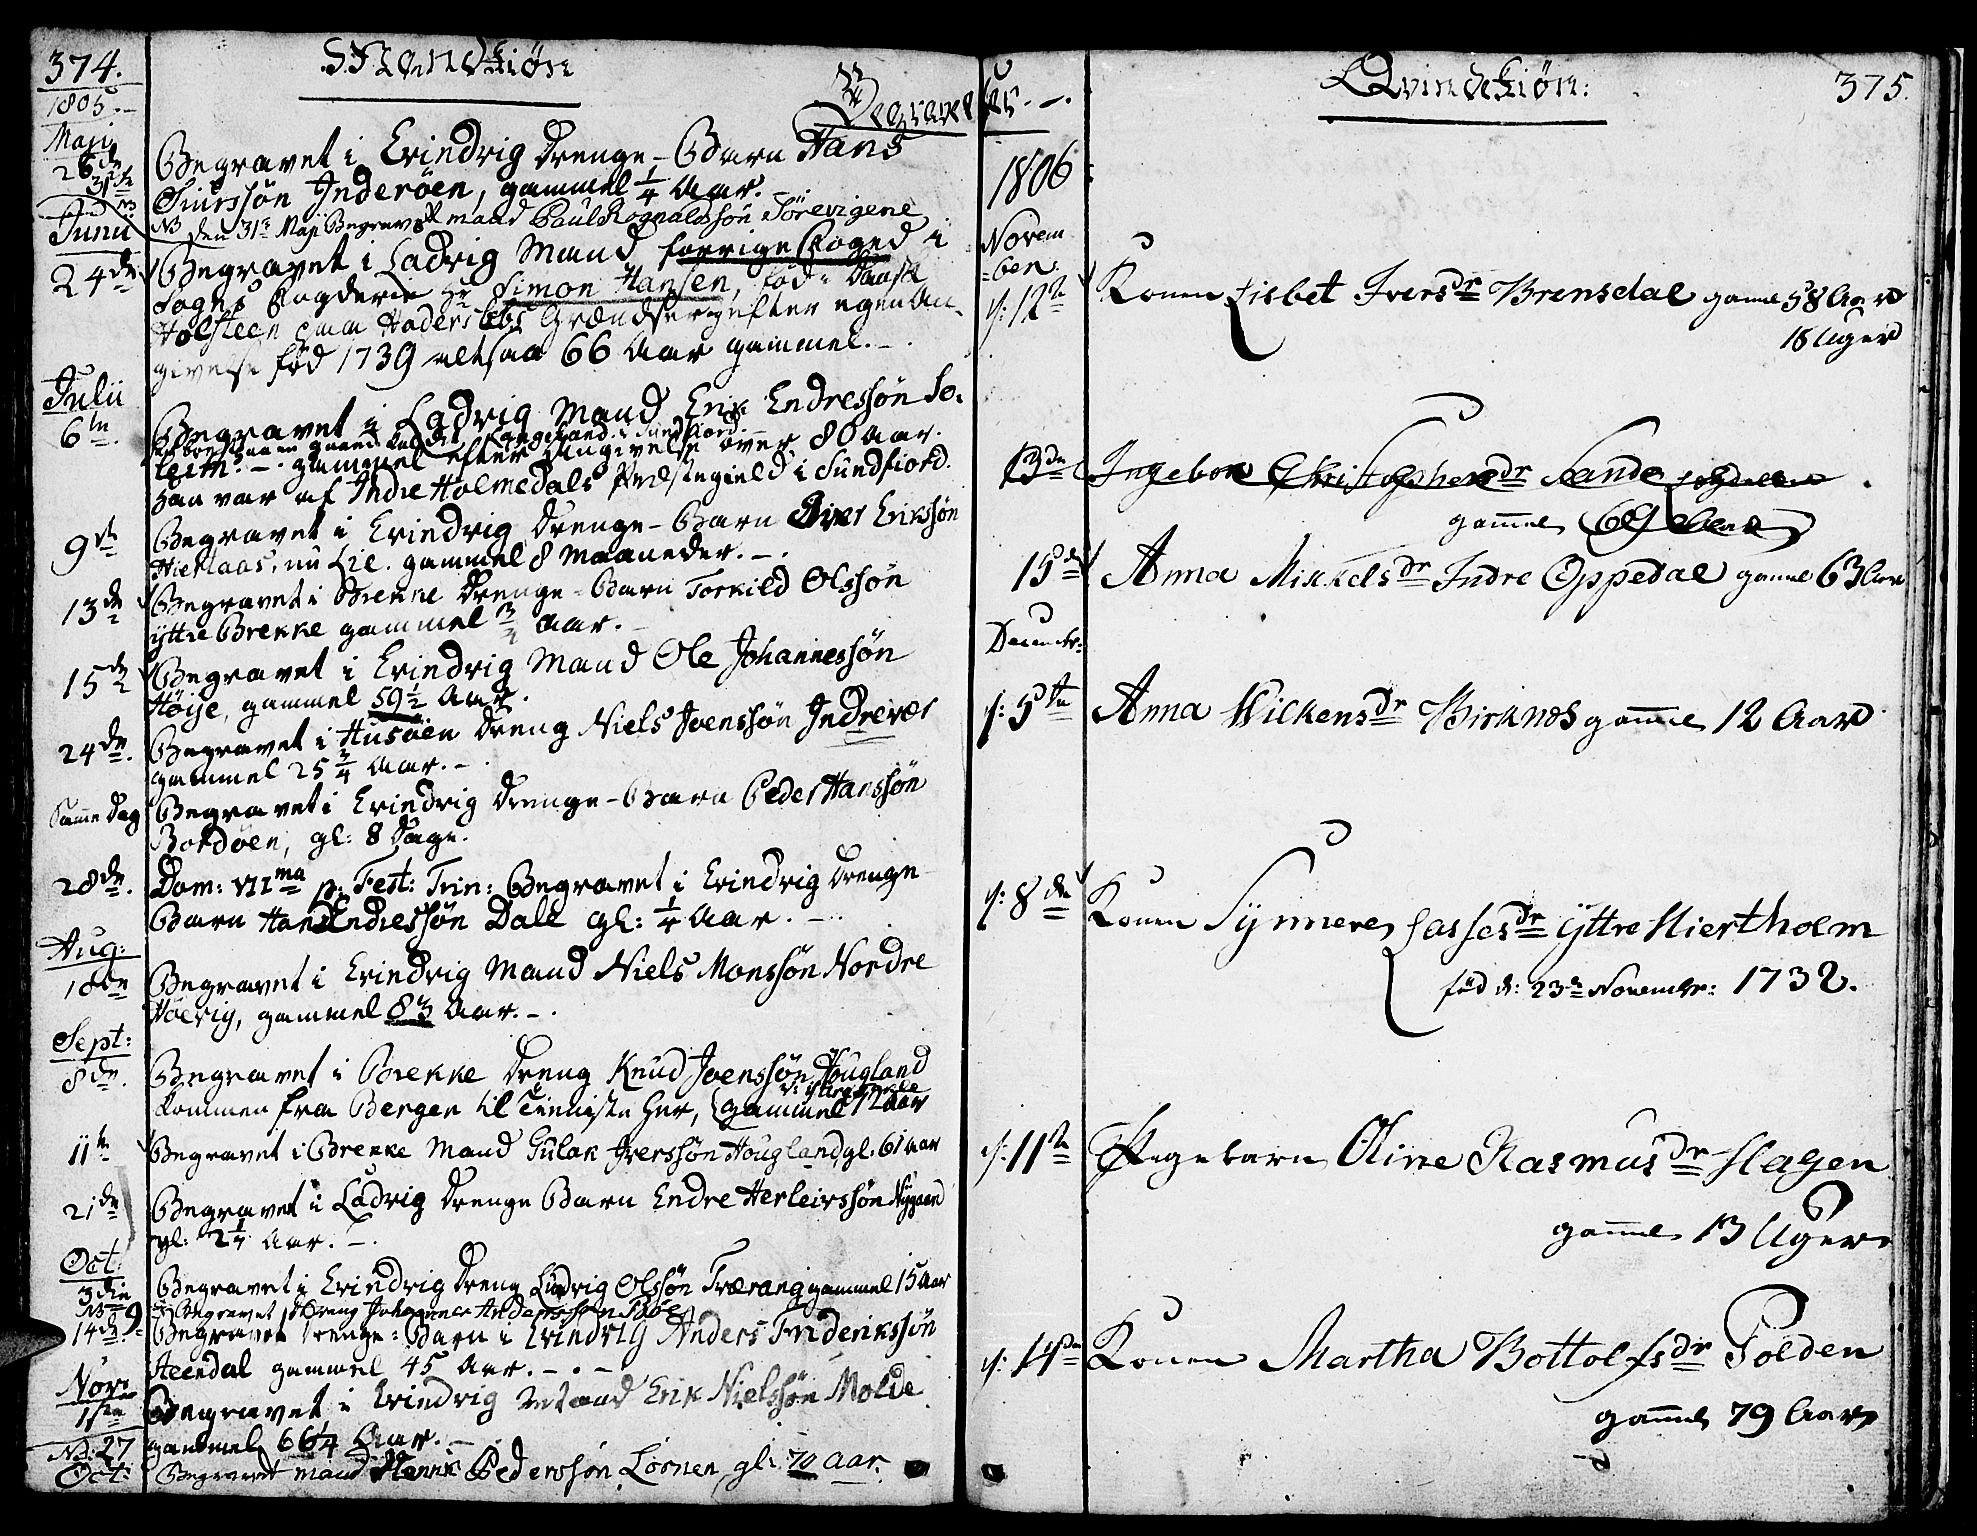 374.
Mandkiøn
Begravet
1805.
Maji
26de
Begravet i Evindvig Drenge-Barn Hans
Siurssøn Inderøen, gammel 1/4 Aar.
31te
NB den 31te Maji Begravet mand Paul Rognaldssøn Sørevigene
Junii
24de
Begravet i Ladvig Mand forrige Foged i
Sogns Fogderie Hr Simon Hansen, fød i Dansk
Holsteen paa Haderslebs Grændser, efter egen An-
givelse fød 1739 altsaa 66 Aar gammel.
Julii
6te
Begravet i Ladvig Mand Erik Endressøn So-
leim. gammel efter Angivelse over 80 Aar.
han var af Indre Holmedals Præstegield i Sundfiord.
9de
Begravet i Evindvig Drenge-Barn Iver Erikssøn
Hieklaas, nu Lie. gammel 8 Maaneder.
13de
Begravet i Brekke Drenge-Barn Torkild Olssøn
yttre Brekke gammel 3/4 Aar.
15de
Begravet i Evindvig Mand Ole Johannessøn
Høije, gammel 59 1/2 Aar.
24de
Begravet i Husøen Dreng Niels Joenssøn Indrevær
gammel 25 3/4 Aar.
Samme Dag
Begravet i Evindvig Drenge-Barn Peder Hanssøn
Bordøen, gl: 8 Dage.
28de
Dom: VIIma p: Fest: Trin: Begravet i Evindvig Drenge
Barn Hans Endressøn Dale gl: 1/4 Aar.
Aug:
18de
Begravet i Evindvig Mand Niels Monssøn Nordre
Høevig, gammel 83 Aar.
Sept:
8de
Begravet i Brekke Dreng Knud Joenssøn Hougland
kommen fra Bergen til Tienniste her, gammel 12 Aar
11te
Begravet i Brekke Mand Gulak Iverssøn Hougland, gl. 61 Aar
21de
Begravet i Ladvig Drenge Barn Endre Herleivssøn Nygaard
gl: 2 1/4 Aar.
Oct:
3die
Begravet i Evindvig Dreng Ludvig Olssøn Trærang gammel 15 Aar
NB 9
Begravet Dreng Johannes Anderssøn
14de
Begravet Drenge-Barn i Evindvig Anders Friderikssøn
Steendal gammel 45 Aar.
Nov:
1ste
Begravet i Evindvig Mand Erik Nielssøn Molde
gammel 66 1/4 Aar.
NB: 27 Oct:
Begravet mand Henrik Pederssøn Losnen, gl: 70 Aar.
Qvindekiøn:
375.
1806
Novem
-ber.
d: 12te
Konen Lisbet Iversdr Brensdal gaml 58 Aar
18 Uger
13de
Ingebor Christophersdr Sande
gammel 69 Aar
15de
Anna Mikkelsdr Indre Oppedal gaml 63 Aar
Decembr:
d: 5te
Anna Wilkensdr Birknes gaml 12 Aar
d: 8de
Konen Synneve Lassesdr Yttre Hiertholm
fød d: 23de Novembr: 1732.
d: 11te
Pigebarn Oline Rasmusdr Hagen
gaml 13 Uger
d: 14de
Konen Martha Bottolfsdr Polden
gaml 79 Aar